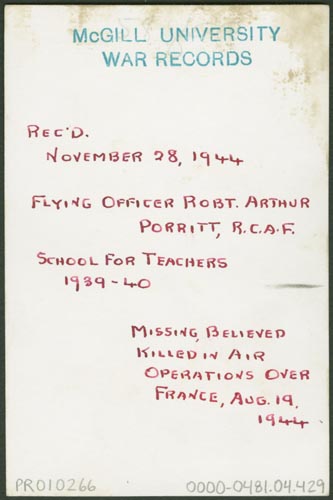 McGILL UNIVERSITY
WAR RECORDS
REC'D.
NOVEMBER 28, 1944
FLYING OFFICER ROBT. ARTHUR
PORRITT, R.C.A.F.
SCHOOL FOR TEACHERS
1939-40
MISSING, BELIEVED
KILLED IN AIR
OPERATIONS OVER
FRANCE, AUG. 19,
1944
PR010266
0000-0481.04.429